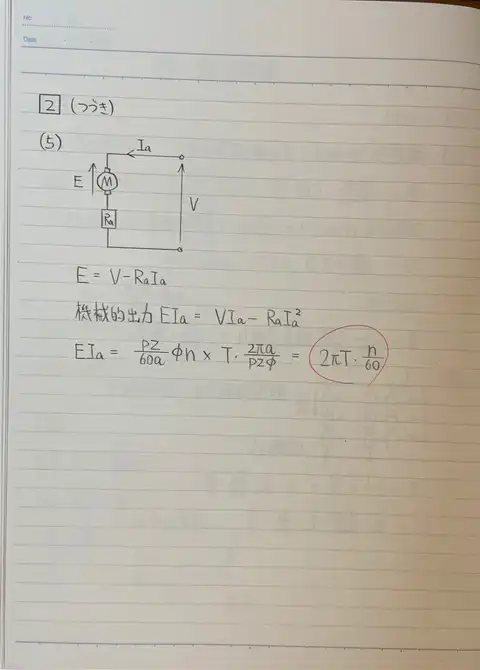 No.
Date
2 (つづき)
(5)
Ia
E
M
Ra
V
E = V-RaIa
機械的出力 EIa = VIa - RaIa²
EIa = pZ/60a Φn × T・2πa/pZΦ = 2πT・n/60